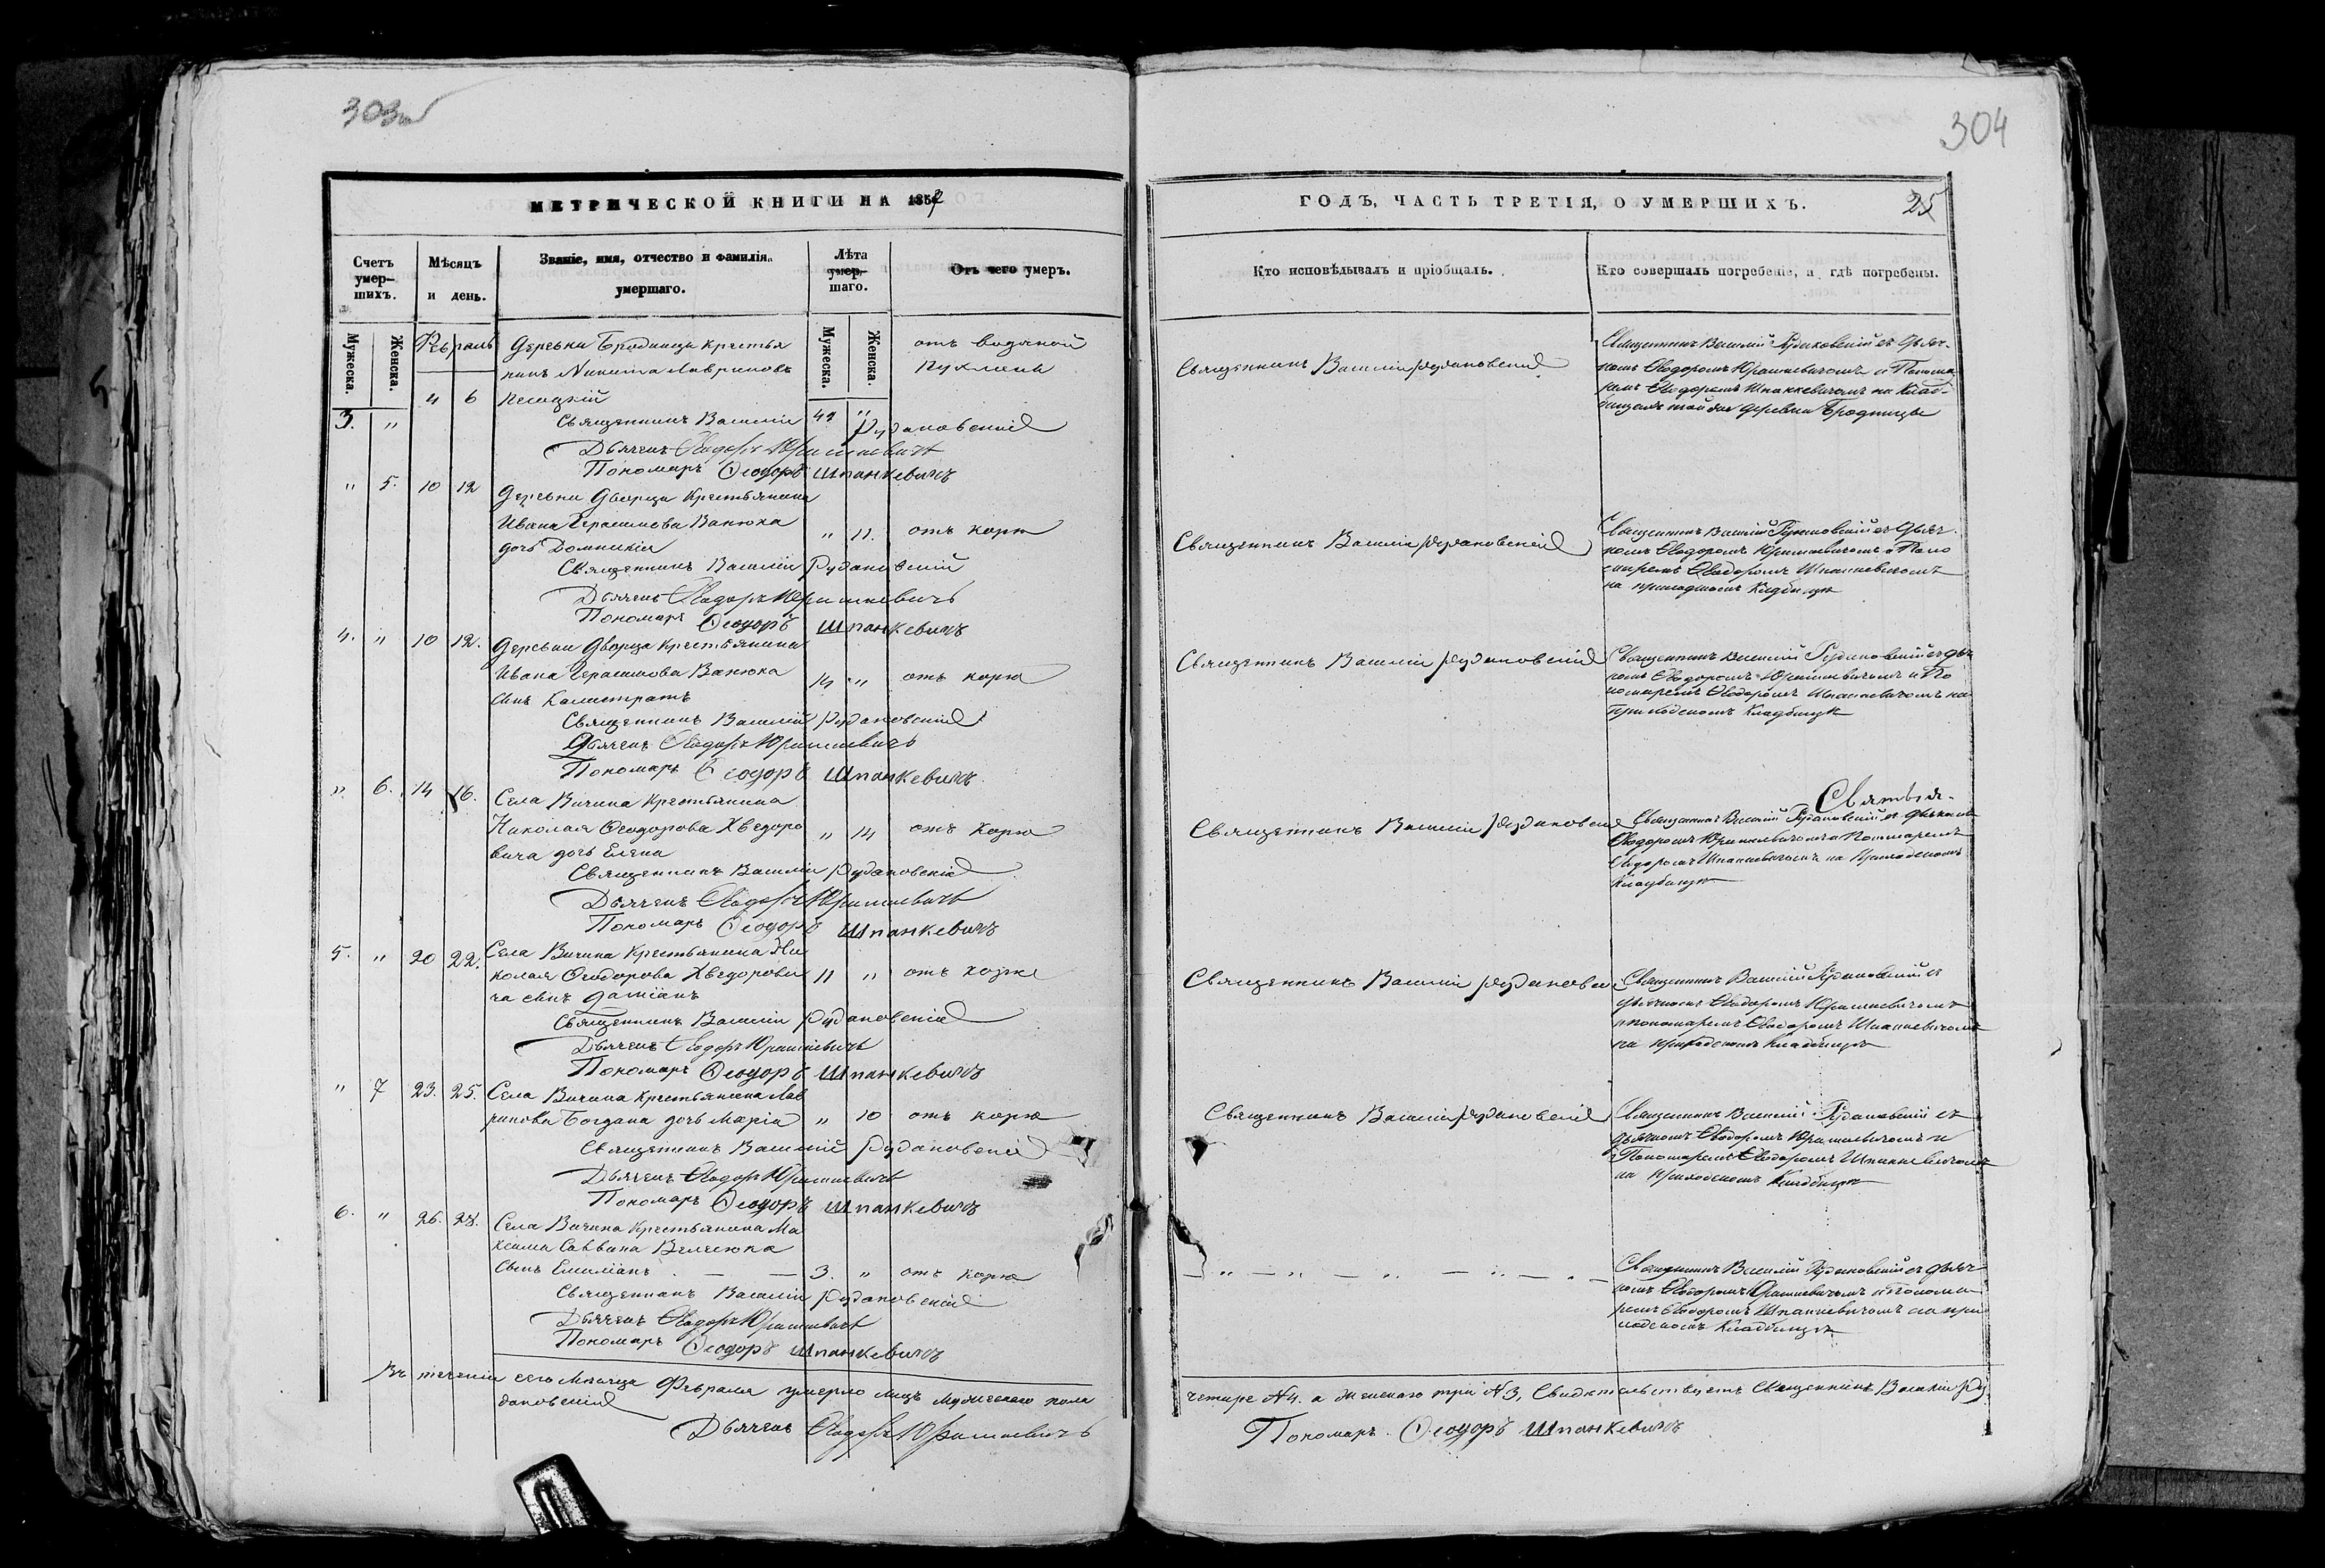 303об
МЕТРИЧЕСКОЙ КНИГИ НА 1857
Счетъ умер-шихъ.
Мѣсяцъ и день.
Званіе, имя, отчество и фамилія умершаго.
Лѣта умер-шаго.
Отъ чего умеръ.
Мужеска.
Женска.
Мужеска.
Женска.
Февраль
Деревни Бродницы крестья
отъ водяной
нинъ Никита Лавриновъ
пухлены
4 6
3. "
41 "
Священникъ Василій Рудаковскій
Дьячекъ Ѳеодоръ Юрашкевичъ
Пономарь Ѳеодоръ Шпанкевичъ
" 5. 10 12
Деревни Дворца Крестьянина
Ивана Герасимова Ванюка " 11. отъ кори
дочь Домникія
Священникъ Василій Рудаковскій
Дьячекъ Ѳеодоръ Юрашкевичъ
Пономарь Ѳеодоръ Шпанкевичъ
4. " 10 12. Деревни Дворца Крестьянина
Ивана Герасимова Ванюка 14 " отъ кори
сынъ Калистратъ
Священникъ Василій Рудаковскій
Дьячекъ Ѳеодоръ Юрашкевичъ
Пономарь Ѳеодоръ Шпанкевичъ
" 6. 14 16. Села Вичина Крестьянина
Николая Ѳеодорова Хведоро " 14 отъ кори
вича дочь Елена
Священникъ Василій Рудаковскій
Дьячекъ Ѳеодоръ Юрашкевичъ
Пономарь Ѳеодоръ Шпанкевичъ
5. " 20 22. Села Вичина Крестьянина Ни
колая Ѳеодорова Хведорови 11 " отъ кори
ча сынъ Даміанъ
Священникъ Василій Рудаковскій
Дьячекъ Ѳеодоръ Юрашкевичъ
Пономарь Ѳеодоръ Шпанкевичъ
" 7 23. 25. Села Вичина Крестьянина Лав
ринова Богдана дочь Марія " 10 отъ кори
Священникъ Василій Рудаковскій
Дьячекъ Ѳеодоръ Юрашкевичъ
Пономарь Ѳеодоръ Шпанкевичъ
6. " 26. 28. Села Вичина Крестьянина Ма
ксима Саввина Велесюка
сынъ Емиліанъ 3. " отъ кори
Священникъ Василій Рудаковскій
Дьячекъ Ѳеодоръ Юрашкевичъ
Пономарь Ѳеодоръ Шпанкевичъ
Въ теченіи сего Мѣсяца Февраля умерло лицъ мужескаго пола
даковскій
Дьячекъ Ѳеодоръ Юрашкевичъ
304
ГОДЪ, ЧАСТЬ ТРЕТІЯ, О УМЕРШИХЪ.
25
Кто исповѣдывалъ и пріобщалъ.
Кто совершалъ погребеніе, и гдѣ погребены.
Священникъ Василій Рудаковскій
Священникъ Василій Рудаковскій съ Дьяч-
комъ Ѳеодоромъ Юрашкевичомъ и Понома
ремъ Ѳеодоромъ Шпанкевичомъ на Клад-
бищѣ той же деревни Бродницы
Священникъ Василій Рудаковскій
Священникъ Василій Рудаковскій съ Дьяч
комъ Ѳеодоромъ Юрашкевичомъ и Поно
маремъ Ѳеодоромъ Шпанкевичомъ
на приходскомъ Кладбищѣ
Священникъ Василій Рудаковскій
Священникъ Василій Рудаковскій съ Дья
комъ Ѳеодоромъ Юрашкевичомъ и По
номаремъ Ѳеодоромъ Шпанкевичомъ на
приходскомъ Кладбищѣ
Священникъ Василій Рудаковскій
Священникъ Василій Рудаковскій съ Дьячкомъ
Ѳеодоромъ Юрашкевичомъ и Пономаремъ
Ѳеодоромъ Шпанкевичомъ на Приходскомъ
Кладбищѣ
Священникъ Василій Рудаковскій
Священникъ Василій Рудаковскій съ
Дьячкомъ Ѳеодоромъ Юрашкевичомъ
и пономаремъ Ѳеодоромъ Шпанкевичомъ
на приходскомъ кладбищѣ
Священникъ Василій Рудаковскій
Священникъ Василій Рудаковскій съ
Дьячкомъ Ѳеодоромъ Юрашкевичомъ и
Пономаремъ Ѳеодоромъ Шпанкевичомъ
на Приходскомъ Кладбищѣ
— " — " — " — " — " —
Священникъ Василій Рудаковскій съ Дьяч
комъ Ѳеодоромъ Юрашкевичомъ и понома
ремъ Ѳеодоромъ Шпанкевичомъ на при
ходскомъ Кладбищѣ
четыре №4. а женскаго три №3, Свидѣтельствуетъ Священникъ Василій Ру-
Пономарь Ѳеодоръ Шпанкевичъ